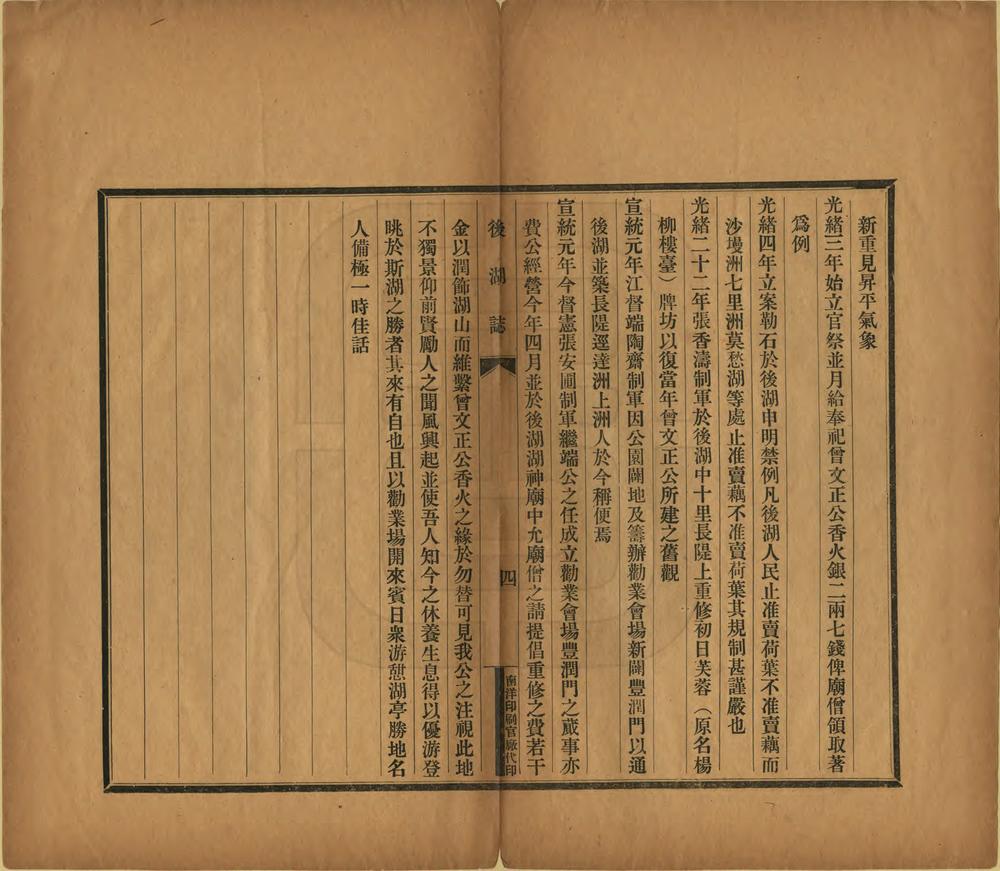 新重見昇平氣象
光緒三年始立官祭並月給奉祀曾文正公香火銀二兩七錢俾廟僧領取著
爲例
光緒四年立案勒石於後湖申明禁例凡後湖人民止准賣荷葉不准賣藕而
沙墁洲七里洲莫愁湖等處止准賣藕不准賣荷葉其規制甚謹嚴也
光緒二十二年張香濤制軍於後湖中十里長隄上重修初日芙蓉（原名楊
柳樓臺）牌坊以復當年曾文正公所建之舊觀
宣統元年江督端陶齋制軍因公園闢地及籌辦勸業會場新闢豐潤門以通
後湖並築長隄逕達洲上洲人於今稱便焉
宣統元年今督憲張安圃制軍繼端公之任成立勸業會場豐潤門之蕆事亦
費公經營今年四月並於後湖湖神廟中允廟僧之請提倡重修之費若干
後湖誌
四
南洋印刷官廠代印
金以潤飾湖山而維繫曾文正公香火之緣於勿替可見我公之注視此地
不獨景仰前賢勵人之聞風興起並使吾人知今之休養生息得以優游登
眺於斯湖之勝者其來有自也且以勸業場開來賓日衆游憇湖亭勝地名
人備極一時佳話